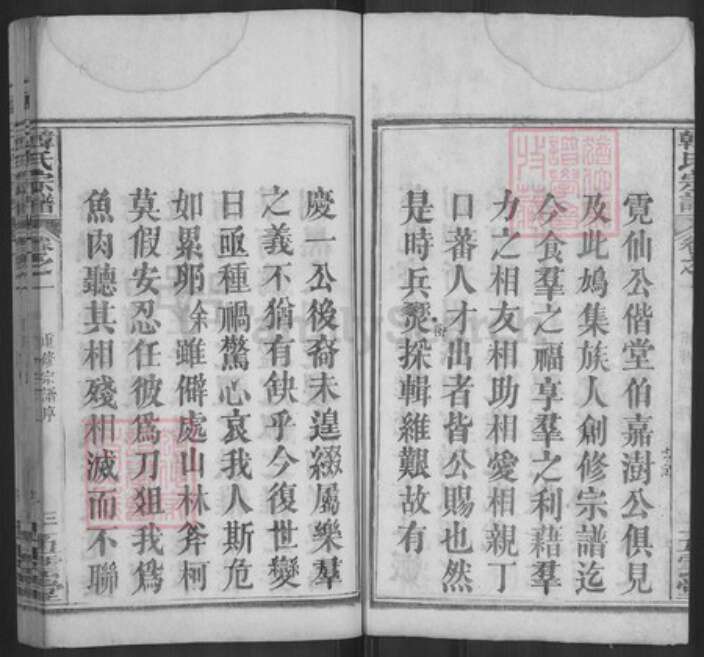 霓仙公偕堂伯嘉澍公俱見
及此鳩集族人創修宗譜迄
今食羣之福享羣之利藉羣
力之相友相助相愛相親丁
口蕃人才出者皆公賜也然
是時兵燹採輯維艱故有
慶一公後裔未遑綴屬樂羣
之義不猶有缺乎今復世變
日亟種禍驚心哀我人斯危
如累卵余雖僻處山林斧柯
莫假安忍任彼爲刀俎我爲
魚肉聽其相殘相滅而不聯
韓氏宗譜
卷之一
重修宗譜序
三